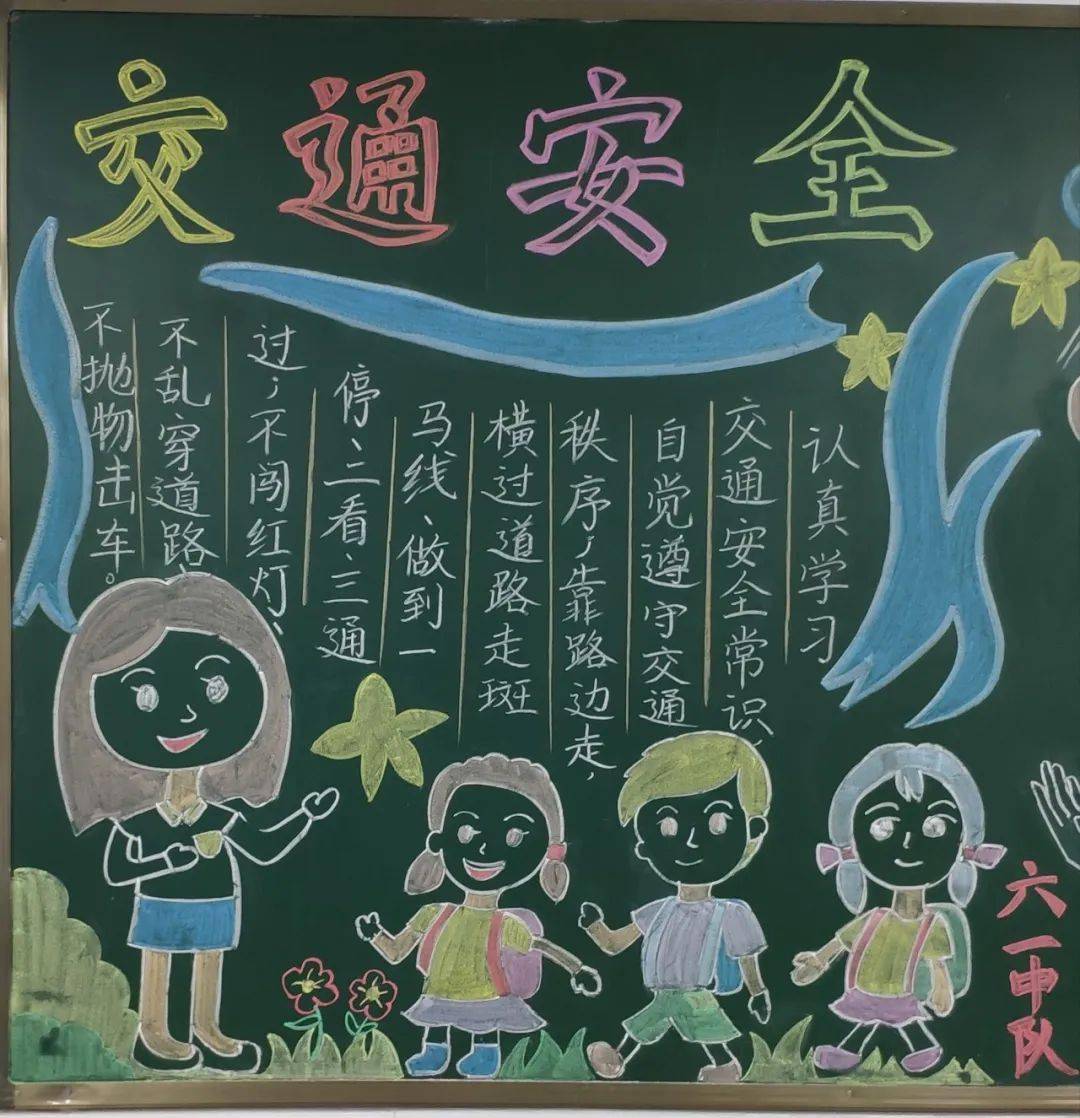 交通安全
认真学习
交通安全常识,
自觉遵守交通
秩序,靠路边走,
横过道路走斑
马线、做到一
停、二看、三通
过;不闯红灯、
不乱穿道路、
不抛物击车。
六一中队